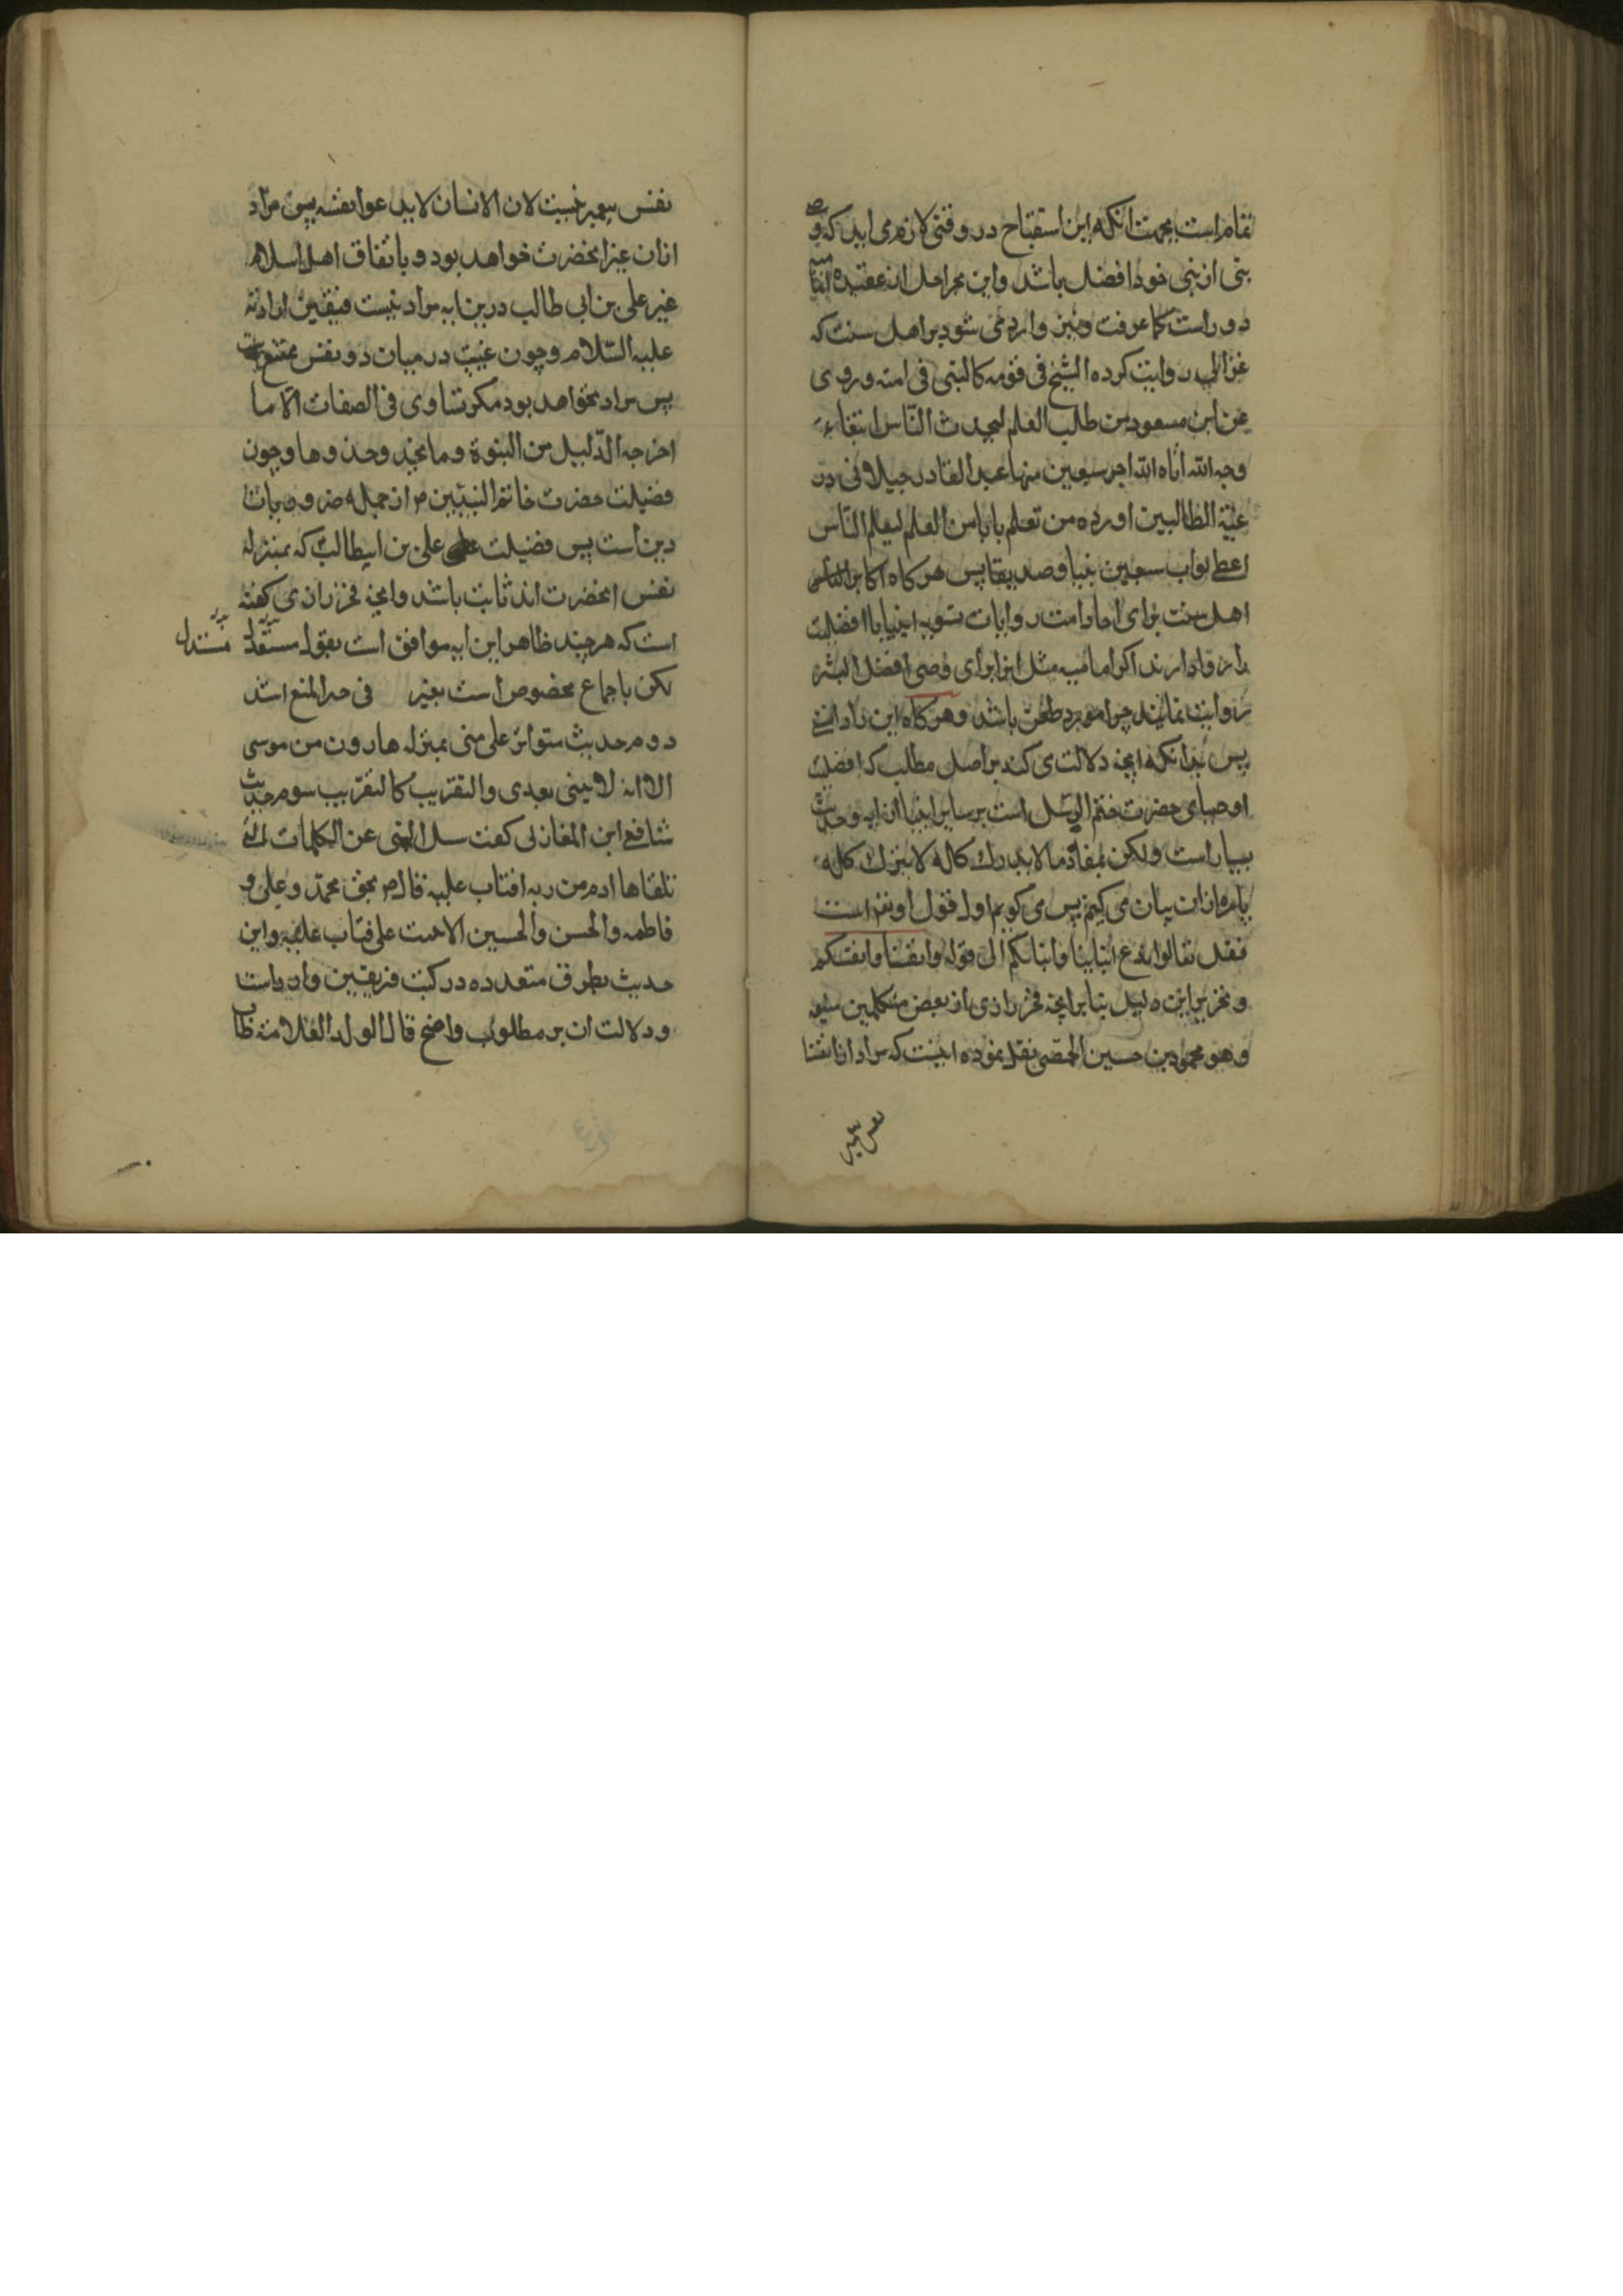 تمام است بجهت انکه این استقباح در وقتی لازم می اید که و
بنی از بنی خود افضل باشد و این بمراحل از عقیده
دور است کما عرفت و نیز وارد می شود بر اهل سنت که
غزالی روایت کرده الشیخ فی قومه کالنبی فی امته و روی
عن ابن مسعود من طلب العلم لیحدث الناس ابتغاء
وجه الله اتاه الله اجر سبعین منها عبد القادر جیلانی در
غنیة الطالبین اورده من تعلم بابا من العلم لیعلم الناس
اعطی ثواب سبعین نبیا و صدیقا پس هر کاه اکابر
اهل سنت برای احاد امت روایات تسویه انبیا یا افضلیت
را روا دارند اکر امامیه مثل انرا برای وصی افضل البشر
روایت نمایند چرا مورد طعن باشد و هر کاه این را دانستی
پس بدانکه انچه دلالت می کند بر اصل مطلب که افضلیت
اوصیای حضرت ختم الرسل است بر سایر انبیا از ایه و حدیث
بسیار است ولکن بمفاد ما لا یدرك کله لا یترك کله
پاره ازان بیان می کنیم پس می کویم اول قول او تعر است
فقل تعالوا ندع ابناینا و ابناءکم الی قوله و انفسنا و انفسکم
و تقریر این دلیل بنا بر انچه فخر رازی از بعض متکلمین شیعه
و هو محمود بن حسین الحمصی نقل نموده اینست که مراد از انفسنا
نفس پیغمبر
نفس پیغمبر نیست لان الانسان لا یدعوا نفسه پس مراد
ازان غیر انحضرت خواهد بود و باتفاق اهل اسلام
غیر علی بن ابی طالب درین ایه مراد نیست فتعین ارادته
علیه السلام و چون عینیت در میان دو نفس ممتنع است
پس مراد نخواهد بود مکر تساوی فی الصفات الا ما
اخرجه الدلیل من النبوة و ما یحذو حذوها و چون
فضیلت حضرت خاتم النبیین م از جمله ضروریات
دین است پس فضیلت علی بن ابیطالب که بمنزله
نفس انحضرت اند ثابت باشد و انچه فخر رازی کفته
است که هر چند ظاهر این ایه موافق است بقول مستدل
مستدل
لکن باجماع مخصوص است بغیر فی حد المنع اشد
دوم حدیث متواتر علی منی بمنزله هارون من موسی
الا انه لا نبی بعدی و التقریب کالتقریب سوم حدیث
شافعی ابن المغازلی کفت سئل النبی عن الکلمات التی
تلقاها ادم من ربه فتاب علیه قال م بحق محمد و علی و
فاطمه و الحسن و الحسین الا تبت علی فتاب علیه و این
حدیث بطرق متعدده در کتب فریقین وارد است
و دلالت ان بر مطلوب واضح قال الوالد العلامة طاب